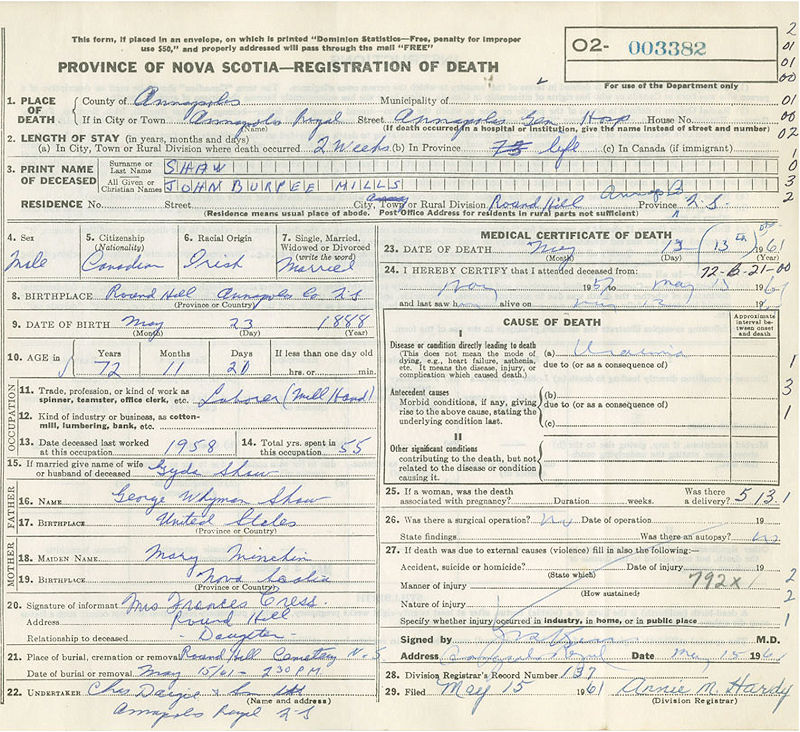 This form, if placed in an envelope, on which is printed "Dominion Statistics—Free, penalty for improper
use $50," and properly addressed will pass through the mail "FREE"
PROVINCE OF NOVA SCOTIA—REGISTRATION OF DEATH
O2- 003382
For use of the Department only
2
01
01
00
01
00
02
1. PLACE OF DEATH
County of Annapolis Municipality of
If in City or Town Annapolis Royal Street Annapolis Gen Hosp House No.
(Name) (If death occurred in a hospital or institution, give the name instead of street and number)
2. LENGTH OF STAY (in years, months and days)
(a) In City, Town or Rural Division where death occurred 2 Weeks (b) In Province life (c) In Canada (if immigrant)
1
3. PRINT NAME OF DECEASED
Surname or Last Name SHAW
0
All Given or Christian Names JOHN BURPEE MILLS
3
Annap Co
RESIDENCE No. Street City, Town or Rural Division Round Hill Province N.S.
2
(Residence means usual place of abode. Post Office Address for residents in rural parts not sufficient)
4. Sex
Male
5. Citizenship
(Nationality)
Canadian
6. Racial Origin
Irish
7. Single, Married,
Widowed or Divorced
(write the word)
Married
8. BIRTHPLACE Round Hill Annapolis Co N.S
(Province or Country)
9. DATE OF BIRTH May 23 1888
(Month) (Day) (Year)
10. AGE in
Years Months Days If less than one day old
72 11 20 hrs. or min.
OCCUPATION
11. Trade, profession, or kind of work as
spinner, teamster, office clerk, etc. Laborer (Mill Hand)
12. Kind of industry or business, as cotton-
mill, lumbering, bank, etc.
13. Date deceased last worked
at this occupation 1958
14. Total yrs. spent in
this occupation 55
15. If married give name of wife
or husband of deceased Gyda Shaw
FATHER
16. NAME George Whyman Shaw
17. BIRTHPLACE United States
(Province or Country)
MOTHER
18. MAIDEN NAME Mary Minchin
19. BIRTHPLACE Nova Scotia
(Province or Country)
20. Signature of informant Mrs Frances Cress.
Address Round Hill
Relationship to deceased - Daughter -
21. Place of burial, cremation or removal Round Hill Cemetery N-S
Date of burial or removal May 15/61 - 2 30 P M
22. UNDERTAKER Chas Dargie & Son Ltd
(Name and address)
Annapolis Royal N-S
MEDICAL CERTIFICATE OF DEATH
23. DATE OF DEATH May 13 (13th 1961
(Month) (Day) (Year)
24. I HEREBY CERTIFY that I attended deceased from: 72-B-21-00
Nov 1957 to May 13 1961
and last saw h alive on May 13 19
CAUSE OF DEATH
Approximate interval between onset and death
I
Disease or condition directly leading to death
(This does not mean the mode of dying, e.g., heart failure, asthenia, etc. It means the disease, injury, or complication which caused death.)
(a) Uraemia
due to (or as a consequence of)
1
Antecedent causes
Morbid conditions, if any, giving rise to the above cause, stating the underlying condition last.
(b)
due to (or as a consequence of)
(c)
3
1
II
Other significant conditions
contributing to the death, but not related to the disease or condition causing it.
25. If a woman, was the death
associated with pregnancy? Duration weeks.
Was there
a delivery? 5 13 1
26. Was there a surgical operation? no Date of operation 19
State findings Was there an autopsy? no
27. If death was due to external causes (violence) fill in also the following:—
Accident, suicide or homicide? Date of injury 19
(State which)
792x
2
Manner of injury
(How sustained)
Nature of injury
2
Specify whether injury occurred in industry, in home, or in public place
1
Signed by M.D.
Address Annapolis Royal Date May 15 1961
28. Division Registrar's Record Number 137
29. Filed May 15 1961 Annie M. Hardy
(Division Registrar)